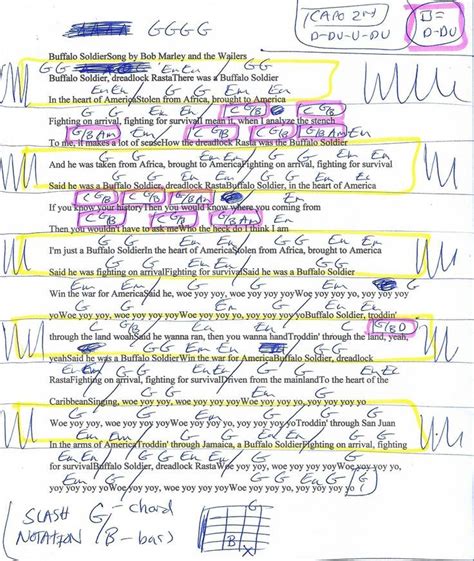 G G G G
CAPO 2ND
D-DU-U-DU
B=
D-DU
Buffalo SoldierSong by Bob Marley and the Wailers
G G Em Em G G
Buffalo Soldier, dreadlock RastaThere was a Buffalo Soldier
Em Em G G Em
In the heart of AmericaStolen from Africa, brought to America
Em G G Em C G/B C G/B
Fighting on arrival, fighting for survivalI mean it, when I analyze the stench
G/B Am Em C G/B C G/B Am Em
To me, it makes a lot of senseHow the dreadlock Rasta was the Buffalo Soldier
G G Em Em G G
And he was taken from Africa, brought to AmericaFighting on arrival, fighting for survival
Em Em G G Em Em
Said he was a Buffalo Soldier, dreadlock RastaBuffalo Soldier, in the heart of America
C G/B C G/B Am
If you know your historyThen you would know where you coming from
C G/B C G/B Am
Then you wouldn't have to ask meWho the heck do I think I am
G G Em Em G G
I'm just a Buffalo SoldierIn the heart of AmericaStolen from Africa, brought to America
Em Em G G Em
Said he was fighting on arrivalFighting for survivalSaid he was a Buffalo Soldier
Em G G Em Em G
Win the war for AmericaSaid he, woe yoy yoy, woe yoy yoy yoyWoe yoy yoy, yo yoy yoy
yoWoe yoy yoy, woe yoy yoy yoyWoe yoy yoy yo, yoy yoy yoy yoBuffalo Soldier, troddin'
C G/B Em Em C G/B D
through the land woahSaid he wanna ran, then you wanna handTroddin' through the land, yeah,
yeahSaid he was a Buffalo SoldierWin the war for AmericaBuffalo Soldier, dreadlock
RastaFighting on arrival, fighting for survivalDriven from the mainlandTo the heart of the
CaribbeanSinging, woe yoy yoy, woe yoy yoy yoyWoe yoy yoy yo, yo yoy yoy yo
Woe yoy yoy, woe yoy yoy yoyWoe yoy yoy yo, yo yoy yoy yoTroddin' through San Juan
In the arms of AmericaTroddin' through Jamaica, a Buffalo SoldierFighting on arrival, fighting
for survivalBuffalo Soldier, dreadlock RastaWoe yoy yoy, woe yoy yoy yoyWoe yoy yoy yo,
yoy yoy yoy yoWoe yoy yoy, woe yoy yoy yoyWoe yoy yoy yo, yoy yoy yoy yo
SLASH G - chord
NOTATION B - bass
G
B
X